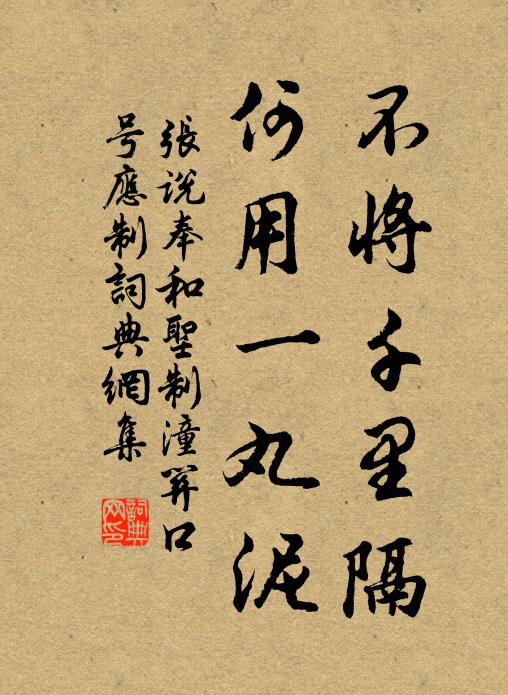 不將千里隔
何用一丸泥
張說奉和聖制潼関口
号應制詞典網集
詞典
网印